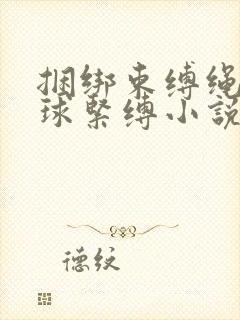 捆绑束缚绳
球紧缚小說
德纹